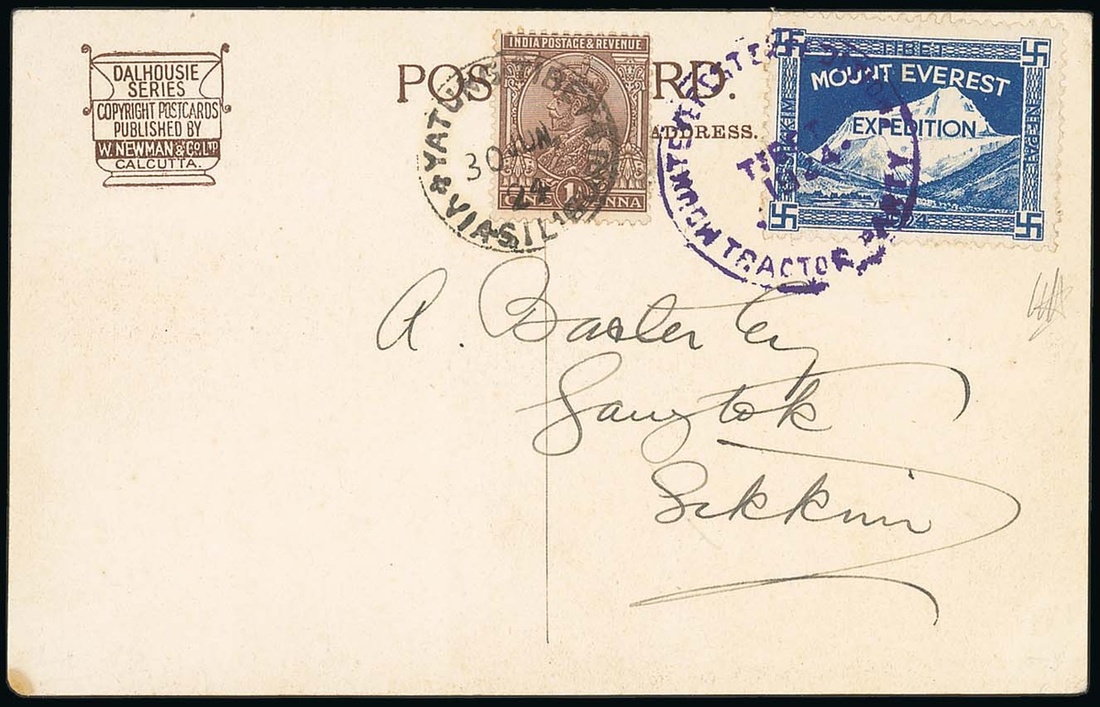 DALHOUSIE
SERIES
COPYRIGHT POSTCARDS
PUBLISHED BY
W. NEWMAN & Co. LTD
CALCUTTA.
POS RD.
ADDRESS.
INDIA POSTAGE & REVENUE
ONE 1A ANNA
YATUNG TIBET
30 JUN.
24
VIA SIL
TIBET
MOUNT EVEREST
EXPEDITION
SIKKIM
NEPAL
24
MOUNT EVEREST EXPEDITION
TIBET
1924.
TRACTOR PARTY
A. Baxter Esq
Gangtok
Sikkim